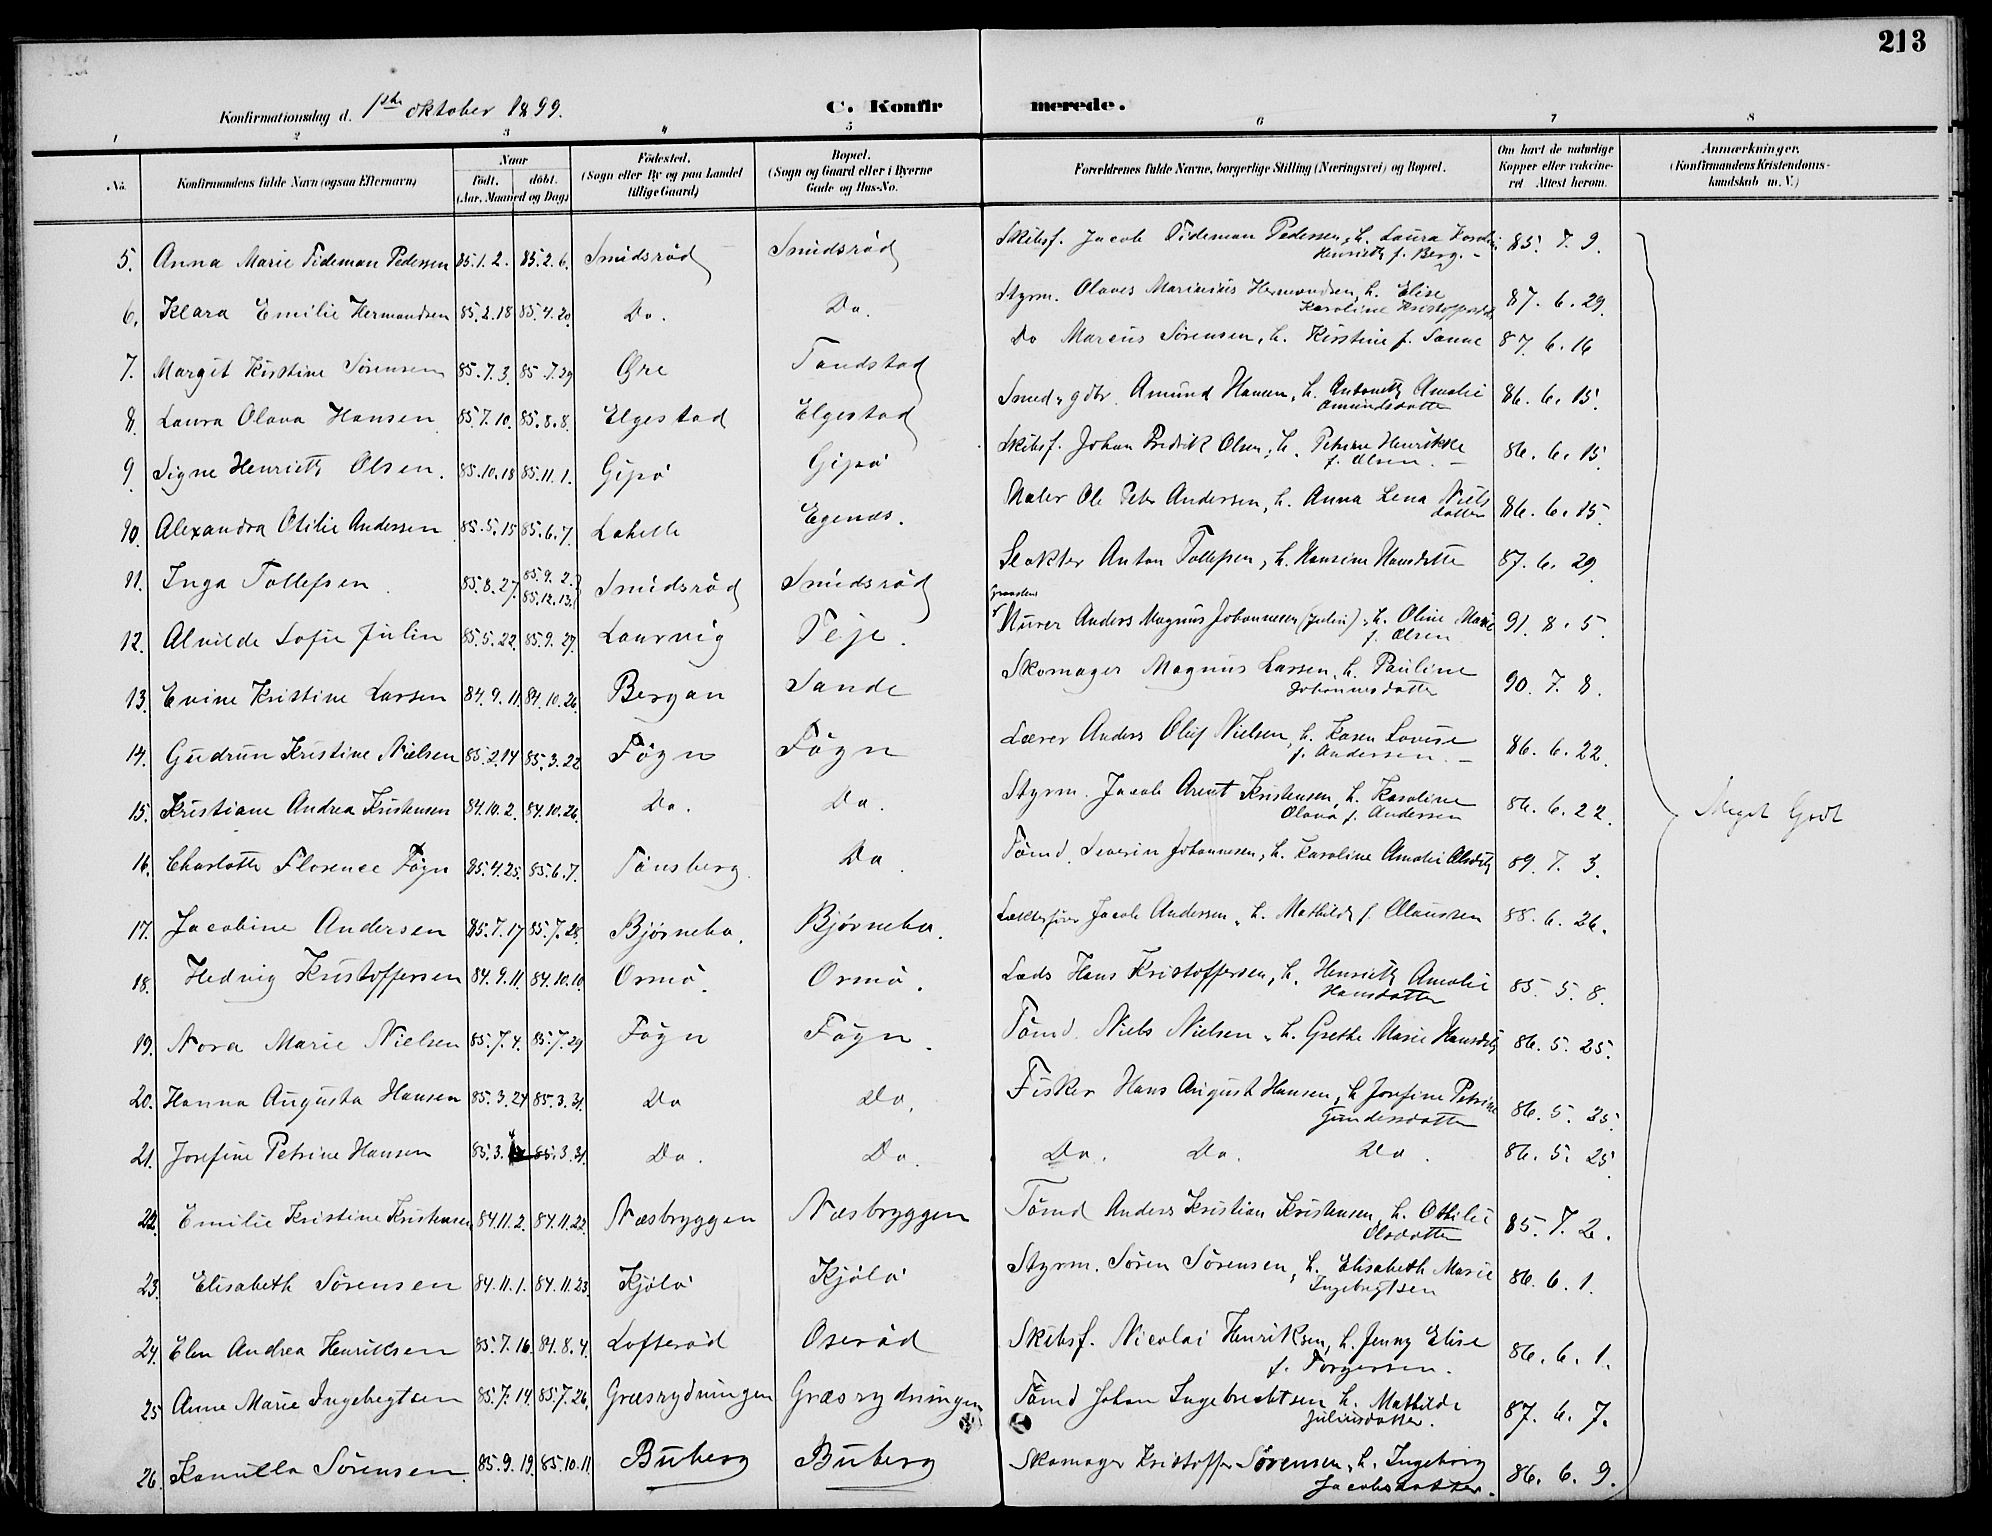 213
Konfirmationsdag d. 1ste oktober 1899.
C. Konfirmerede.
1 2 3 4 5 6 7 8
No.
Konfirmandens fulde Navn (ogsaa Efternavn)
Naar
født. døbt.
(Aar, Maaned og Dag)
Födested.
(Sogn eller By og paa Landet
tillige Gaard)
Bopæl.
(Sogn og Gaard eller i Byerne
Gade og Hus-No.
Forældrenes fulde Navne, borgerlige Stilling (Næringsvei) og Bopæl.
Om havt de naturlige
Kopper eller vakcine-
ret Attest herom.
Anmærkninger.
(Konfirmandens Kristendoms-
kundskab m. V.)
5. Anna Marie Tideman Pedersen 85.1.2. 85.2.6. Smidsrød Smidsrød Skibsf. Jacob Tideman Pedersen, h. Laura Karoline
Henriette f. Berg. 85. 7. 9.
6. Klara Emilie Hermandsen 85.2.18 85.4.20. Do. Do. Styrm. Olaves Marinius Hermandsen, h. Elise
Karoline Kristoffersdtr 87. 6. 29.
7. Margit Kristine Sørensen 85.7.3. 85.7.29 Øre Tandstad Do Marcus Sørensen, h. Kristine f. Sanne 87. 6. 16
8. Laura Olava Hansen 85.7.10. 85.8.8. Elgestad Elgestad Smed, gdbr. Amund Hansen, h. Antonette Amalie
Amundsdatter 86. 6. 15.
9. Signe Henriette Olsen. 85.10.18 85.11.1. Gipø Gipø Skibsf. Johan Fredrik Olsen, h. Petrine Henrikke
f. Olsen. 86. 6. 15.
10. Alexandra Otilie Andersen 85.5.15 85.6.7. Lahelle Egenæs. Maler Ole Peter Andersen, h. Anna Lena Niels
datter 86. 6. 15.
11. Inga Tollefsen 85.8.27. 85.9.2.
85.12.13. Smidsrød Smidsrød Slakter Anton Tollefsen, h. Hansine Hansdatter 87. 6. 29.
12. Alvilde Sofie Julin 85.5.22. 85.9.27. Laurvig Teje. Murer Anders Magnus Johannesen (Julin), h. Oline Marie
f. Olsen 91. 8. 5.
13. Evine Kristine Larsen 84.9.11. 84.10.26. Bergan Sande Skomager Magnus Larsen, h. Pauline
Johannesdatter 90. 7. 8.
14. Gudrun Kristine Nielsen 85.2.14 85.3.22 Føgn Føgn Lærer Anders Oluf Nielsen, h. Karen Lovise
f. Andersen. 86. 6. 22.
15. Kristiane Andrea Kristensen 84.10.2. 84.10.26. Do. Do. Styrm. Jacob Arent Kristensen, h. Karoline
Olava f. Andersen 86. 6. 22.
16. Charlotte Florence Føgn 85.4.25. 85.6.7. Tønsberg. Do Tømd. Severin Johannesen, h. Karoline Amalie Olsdtr 89. 7. 3.
17. Jacobine Andersen 85.7.17 85.7.28. Bjørnebo. Bjørnebo. Jacob Andersen, h. Mathilde f. Claussen 88. 6. 26.
18. Hedvig Kristoffersen 84.9.11. 84.10.10. Ormø. Ormø. Lods Hans Kristoffersen, h. Henriette Amalie
Hansdatter 85. 5. 8.
19. Nora Marie Nielsen 85.7.4. 85.7.29 Føgn Føgn. Tømd. Niels Nielsen, h. Grethe Marie Hansdtr 86. 5. 25.
20. Hanna Augusta Hansen 85.3.24 85.3.31. Do Do. Fisker Hans August Hansen, h Josefine Petrine
Gundersdatter 86. 5. 25.
21. Josefine Petrine Hansen 85.3. 85.3.31. Do. Do. Do. Do. Do. 86. 5. 25
22. Emilie Kristine Kristensen 84.11.2. 84.11.22. Næsbryggen Næsbryggen Tømd Anders Kristian Kristensen, h. Othilie
Olsdatter 85. 7. 2.
23. Elisabeth Sørensen 84.11.1. 84.11.23. Kjølø Kjølø Styrm. Søren Sørensen, h. Elisabeth Marie
Ingebregtsen 86. 6. 1.
24. Elen Andrea Henriksen 85.7.16. 84.8.4. Lofterød Oserød Skibsf. Nicolai Henriksen, h. Jenny Elise
f. Torgersen. 86. 6. 1.
25 Anne Marie Ingebregtsen 85.7.14. 85.7.26. Græsrydningen Græsrydningen Tømd Johan Ingebrechtsen h. Mathilde
Juliusdatter. 87. 6. 7.
26. Kamilla Sørensen. 85.9.19. 85.10.11. Buberg Buberg Skomager Kristoffer Sørensen, h. Ingeborg
Jacobsdatter. 86. 6. 9.
Meget Godt